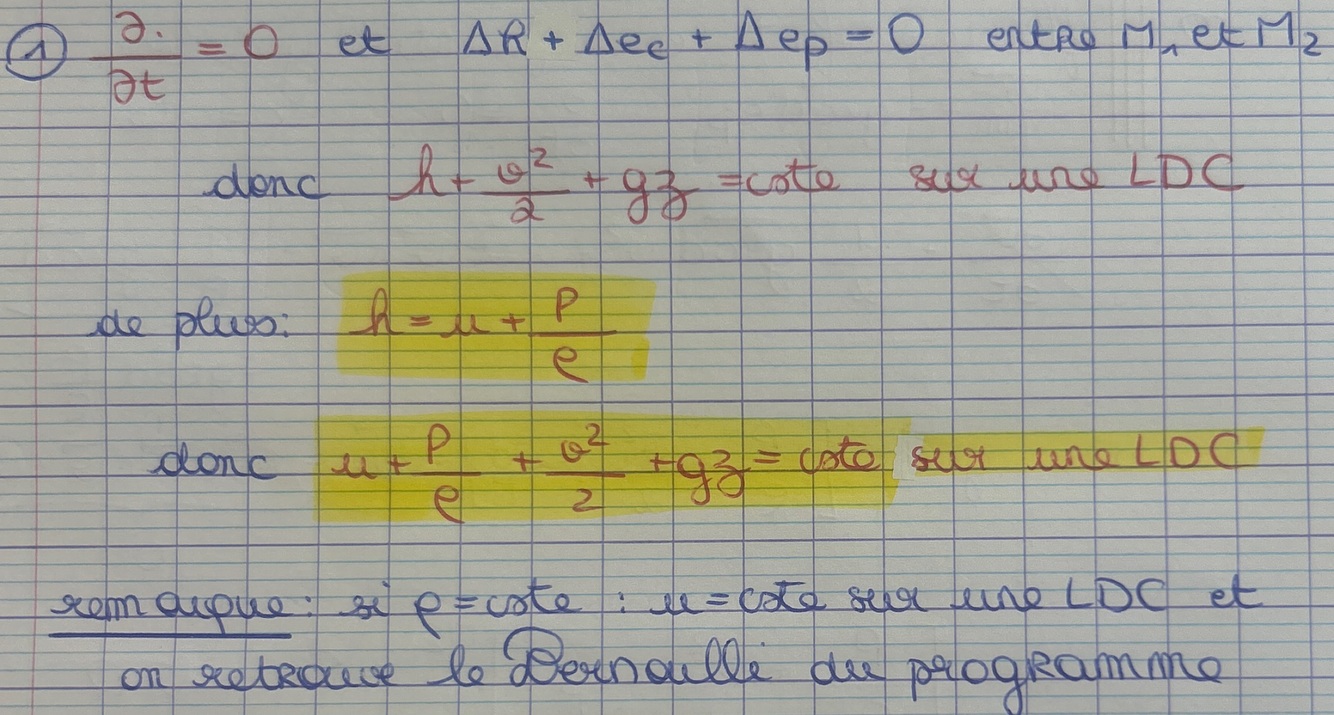 ① ∂./∂t = 0 et Δh + Δec + Δep = 0 entre M₁ et M₂
donc h + v²/2 + gz = cste sur une LDC
de plus : h = u + P/ρ
donc u + P/ρ + v²/2 + gz = cste sur une LDC
remarque : si ρ = cste : u = cste sur une LDC et
on retrouve le Bernoulli du programme